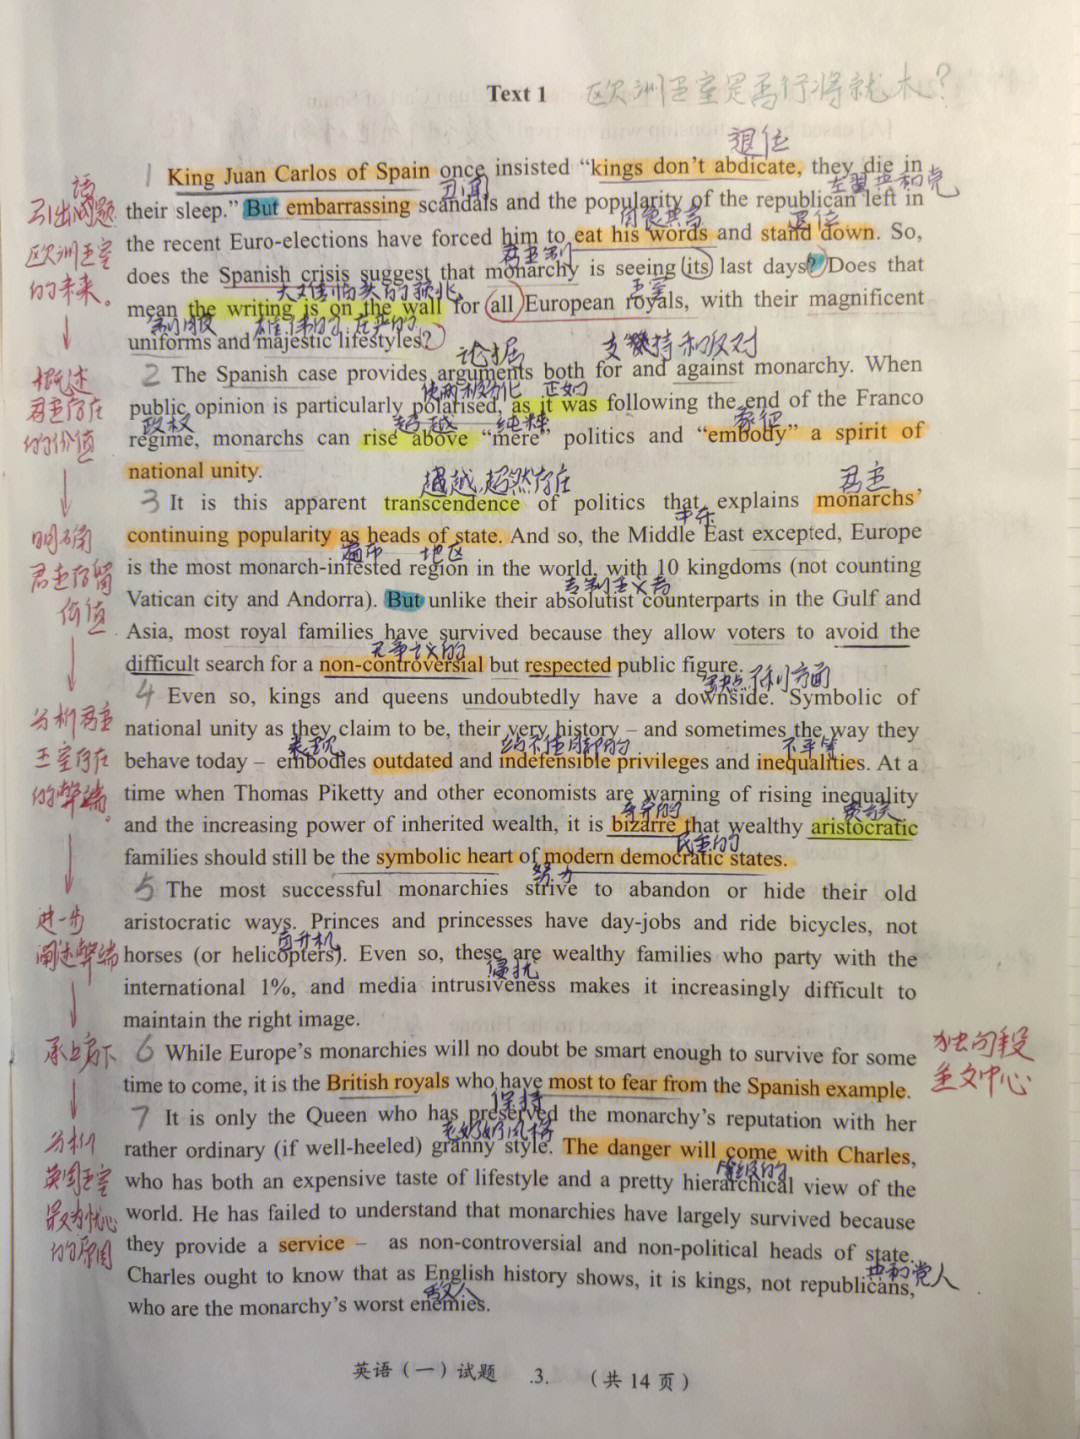 Text 1 欧洲王室是否行将就木?
退位
1 King Juan Carlos of Spain once insisted “kings don’t abdicate, they die in
丑闻 左翼共和党
their sleep.” But embarrassing scandals and the popularity of the republican left in
引出话题
退位
the recent Euro-elections have forced him to eat his words and stand down. So,
欧洲王室
君主制
does the Spanish crisis suggest that monarchy is seeing its last days? Does that
的未来。
王室
mean the writing is on the wall for all European royals, with their magnificent
制服 雄伟的 庄严的
uniforms and majestic lifestyles?
论据 支持和反对
2 The Spanish case provides arguments both for and against monarchy. When
概述
使两极分化 正如
public opinion is particularly polarised, as it was following the end of the Franco
君主存在
政权 超越 纯粹 象征
regime, monarchs can rise above “mere” politics and “embody” a spirit of
的价值
national unity.
超越,超然存在 君主
3 It is this apparent transcendence of politics that explains monarchs’
中东
continuing popularity as heads of state. And so, the Middle East excepted, Europe
明确
遍布 地区
is the most monarch-infested region in the world, with 10 kingdoms (not counting
君主存留
专制主义者
Vatican city and Andorra). But unlike their absolutist counterparts in the Gulf and
价值
Asia, most royal families have survived because they allow voters to avoid the
无争议的
difficult search for a non-controversial but respected public figure.
缺点,不利方面
4 Even so, kings and queens undoubtedly have a downside. Symbolic of
分析君主
national unity as they claim to be, their very history – and sometimes the way they
王室存在
表现 站不住脚的 不平等
behave today – embodies outdated and indefensible privileges and inequalities. At a
的弊端。
time when Thomas Piketty and other economists are warning of rising inequality
奇怪的 贵族
and the increasing power of inherited wealth, it is bizarre that wealthy aristocratic
民主的
families should still be the symbolic heart of modern democratic states.
努力
5 The most successful monarchies strive to abandon or hide their old
进一步
aristocratic ways. Princes and princesses have day-jobs and ride bicycles, not
阐述弊端
直升机
horses (or helicopters). Even so, these are wealthy families who party with the
侵扰
international 1%, and media intrusiveness makes it increasingly difficult to
maintain the right image.
承上启下
6 While Europe’s monarchies will no doubt be smart enough to survive for some
独句段
time to come, it is the British royals who have most to fear from the Spanish example.
全文中心
保持
7 It is only the Queen who has preserved the monarchy’s reputation with her
老奶奶风格
rather ordinary (if well-heeled) granny style. The danger will come with Charles,
分析
等级的
who has both an expensive taste of lifestyle and a pretty hierarchical view of the
英国王室
world. He has failed to understand that monarchies have largely survived because
最为忧心
they provide a service – as non-controversial and non-political heads of state.
的原因
共和党人
Charles ought to know that as English history shows, it is kings, not republicans,
敌人
who are the monarchy’s worst enemies.
英语(一)试题 .3. (共 14 页)